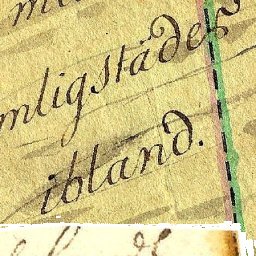 mligstädes
ibland.